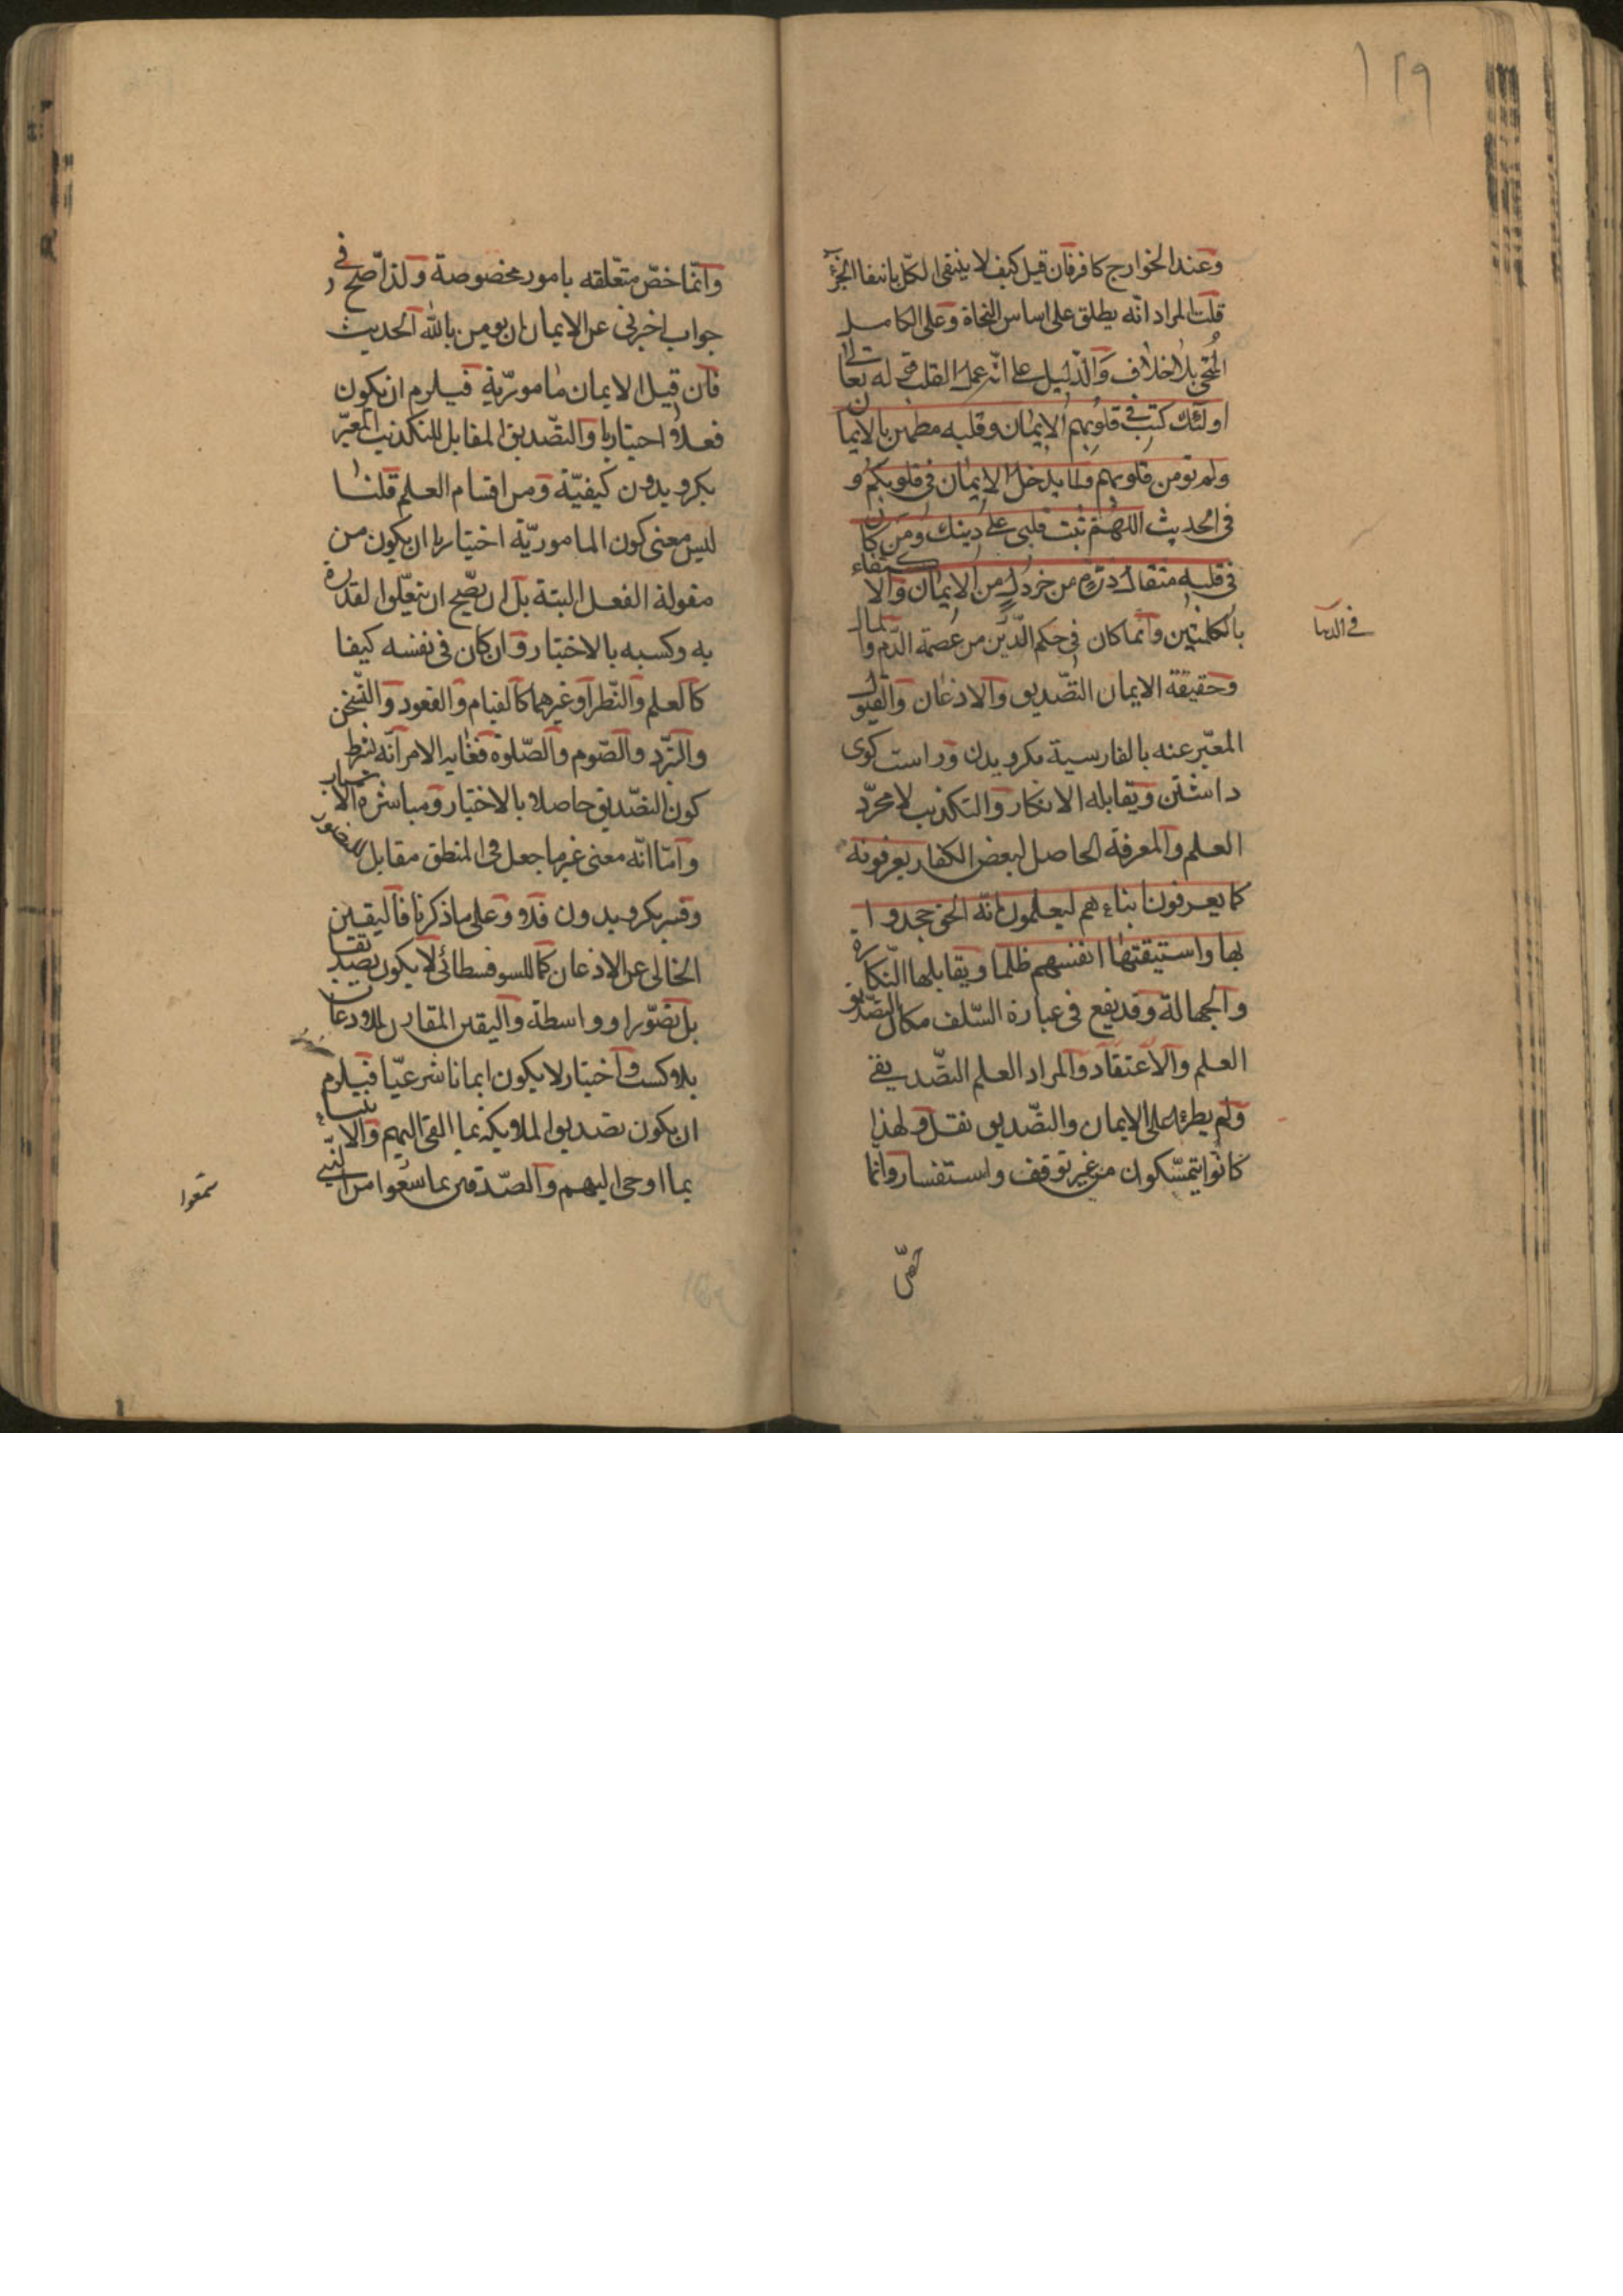 ١٢٩
وعند الخوارج كافر فان قيل كيف لا ينتفى الكل بانتفا الجزء
قلت المراد انه يطلق على اساس النجاة وعلى الكامل
المنجى بلا خلاف والدليل على انه عمل القلب قوله تعالى
اولئك كتب فى قلوبهم الايمان وقلبه مطمئن بالايمان
ولم تومن قلوبهم ولما يدخل الايمان فى قلوبكم و
فى الحديث اللهم ثبت قلبى على دينك ومن كان
فى قلبه مثقال ذرة من خردل من الايمان والاكتفاء
بالكلمتين وانما كان فى حكم الدين من عصمة الدم والمال
فى الدنيا
وحقيقة الايمان التصديق والاذعان والقبول
المعبر عنه بالفارسية بكرويدن وراست كوى
داشتن ويقابله الانكار والتكذيب لا مجرد
العلم والمعرفة الحاصل لبعض الكفار يعرفونه
كما يعرفون ابناءهم ليعلمون انه الحق جحدوا
بها واستيقنتها انفسهم ظلما ويقابلها النكارة
والجهالة وقد يقع فى عبارة السلف مكان التصديق
العلم والاعتقاد والمراد العلم التصديقى
ولم يطرء على الايمان والتصديق نقل ولهذا
كانوا يتمسكون من غير توقف واستفسار وانما
خص
وانما خص متعلقه بامور مخصوصة ولذا صح فى
جواب اخبرنى عن الايمان ان يومن بالله الحديث
فان قيل الايمان مامور به فيلزم ان يكون
فعلا اختياريا والتصديق المقابل للتكذيب المعبر
بكرويدون كيفية ومن اقسام العلم قلنا
ليس معنى كون المامور به اختياريا ان يكون من
مقولة الفعل البتة بل ان يصح ان يتعلق القدرة
به وكسبه بالاختيار وان كان فى نفسه كيفا
كالعلم والنظر او غيرهما كالقيام والقعود والتسخن
والتبرد والصوم والصلوة فغاية الامر انه يشترط
كون التصديق حاصلا بالاختيار ومباشرة الاسباب
واما انه معنى غير ما جعل فى المنطق مقابل للتصور
وفسر بكرويدون فلا وعلى ما ذكرنا فاليقين
الخالى عن الاذعان كما للسوفسطائى لا يكون تصديقا
بل تصورا او واسطة واليقين المقارن للاذعان
بلا كسب واختيار لا يكون ايمانا شرعيا فيلزم
ان يكون تصديق الملايكة بما القى اليهم والانبياء
بما اوحى اليهم والصدقين بما سمعوا من النبى
سمعوا